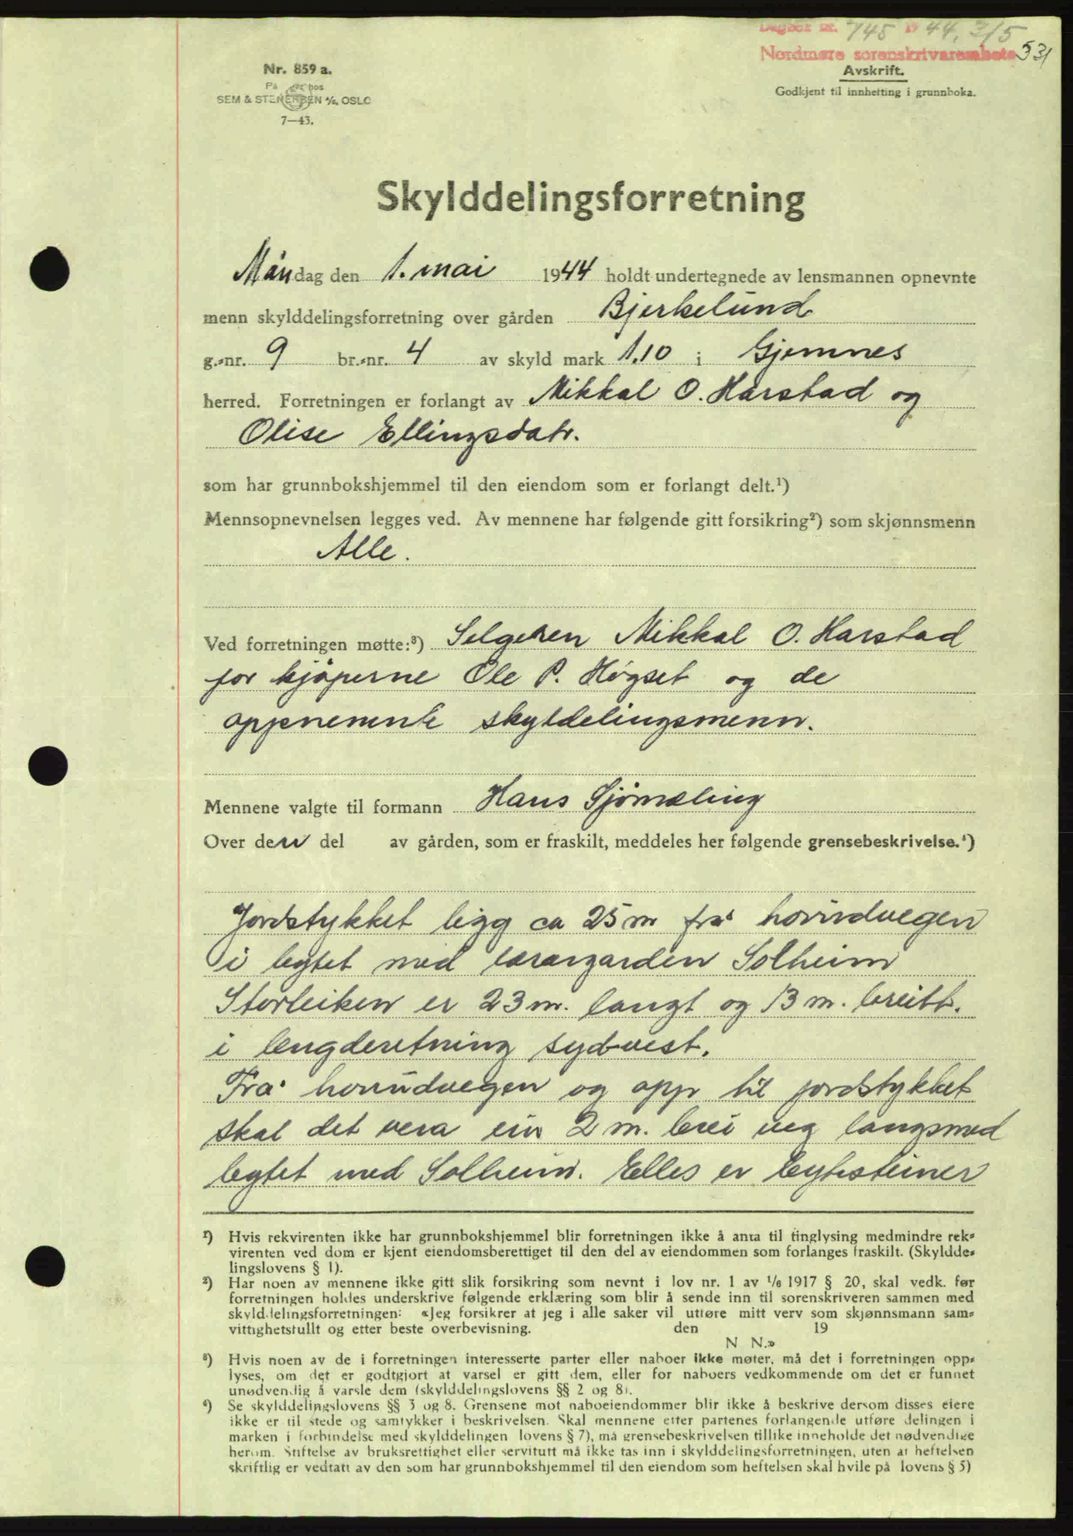 Dagbok nr. 745 1944, 3/5
Nordmøre sorenskrivarembete 531
Nr. 859 a.
På lager hos
SEM & STENERSEN A/S, OSLO
7—43.
Avskrift.
Godkjent til innhefting i grunnboka.
Skylddelingsforretning
Måndag den 1. mai 1944 holdt undertegnede av lensmannen opnevnte
menn skylddelingsforretning over gården Bjerkelund
g.-nr. 9 br.-nr. 4 av skyld mark 1.10 i Gjemnes
herred. Forretningen er forlangt av Mikkal O. Harstad og
Olise Ellingsdatr.
som har grunnbokshjemmel til den eiendom som er forlangt delt.¹)
Mennsopnevnelsen legges ved. Av mennene har følgende gitt forsikring²) som skjønnsmenn
Alle.
Ved forretningen møtte:³) Selgeren Mikkal O. Harstad
for kjøperne Ole P. Høgset og de
oppnemnte skyldelingsmenn.
Mennene valgte til formann Hans Sjømæling
Over den del av gården, som er fraskilt, meddeles her følgende grensebeskrivelse.⁴)
Jordstykket ligg ca 25 m frå hovudvegen
i bytet med lærargarden Solheim
Storleiken er 23 m. langt og 13 m. breitt.
i lengderetning sydvest.
Frå hovudvegen og opp til jordstykket
skal det vera ein 2 m. brei veg langsmed
bytet med Solheim. Elles er bytesteiner
¹) Hvis rekvirenten ikke har grunnbokshjemmel blir forretningen ikke å anta til tinglysing medmindre rek-
virenten ved dom er kjent eiendomsberettiget til den del av eiendommen som forlanges fraskilt. (Skyldde-
lingslovens § 1).
²) Har noen av mennene ikke gitt slik forsikring som nevnt i lov nr. 1 av 1/6 1917 § 20, skal vedk. før
forretningen holdes underskrive følgende erklæring som blir å sende inn til sorenskriveren sammen med
skylddelingsforretningen: «Jeg forsikrer at jeg i alle saker vil utføre mitt verv som skjønnsmann sam-
vittighetsfullt og etter beste overbevisning. den 19
N N.»
³) Hvis noen av de i forretningen interesserte parter eller naboer ikke møter, må det i forretningen opp-
lyses, om det er godtgjort at varsel er gitt dem, eller for naboers vedkommende om det er funnet
unødvendig å varsle dem (skylddelingslovens §§ 2 og 8).
⁴) Se skylddelingslovens §§ 3 og 8. Grensene mot naboeiendommer blir ikke å beskrive dersom disses eiere
ikke er til stede og samtykker i beskrivelsen. Skal mennene etter partenes forlangende utføre delingen i
marken i forbindelse med skylddelingen lovens § 7), må grensebeskrivelsen tillike inneholde det nødvendige
herom. Stiftelse av bruksrettighet eller servitutt må ikke tas inn i skylddelingsforretningen, uten at heftelsen
skriftlig er vedtatt av den som har grunnbokshjemmel til den eiendom som heftelsen skal hvile på lovens § 5)